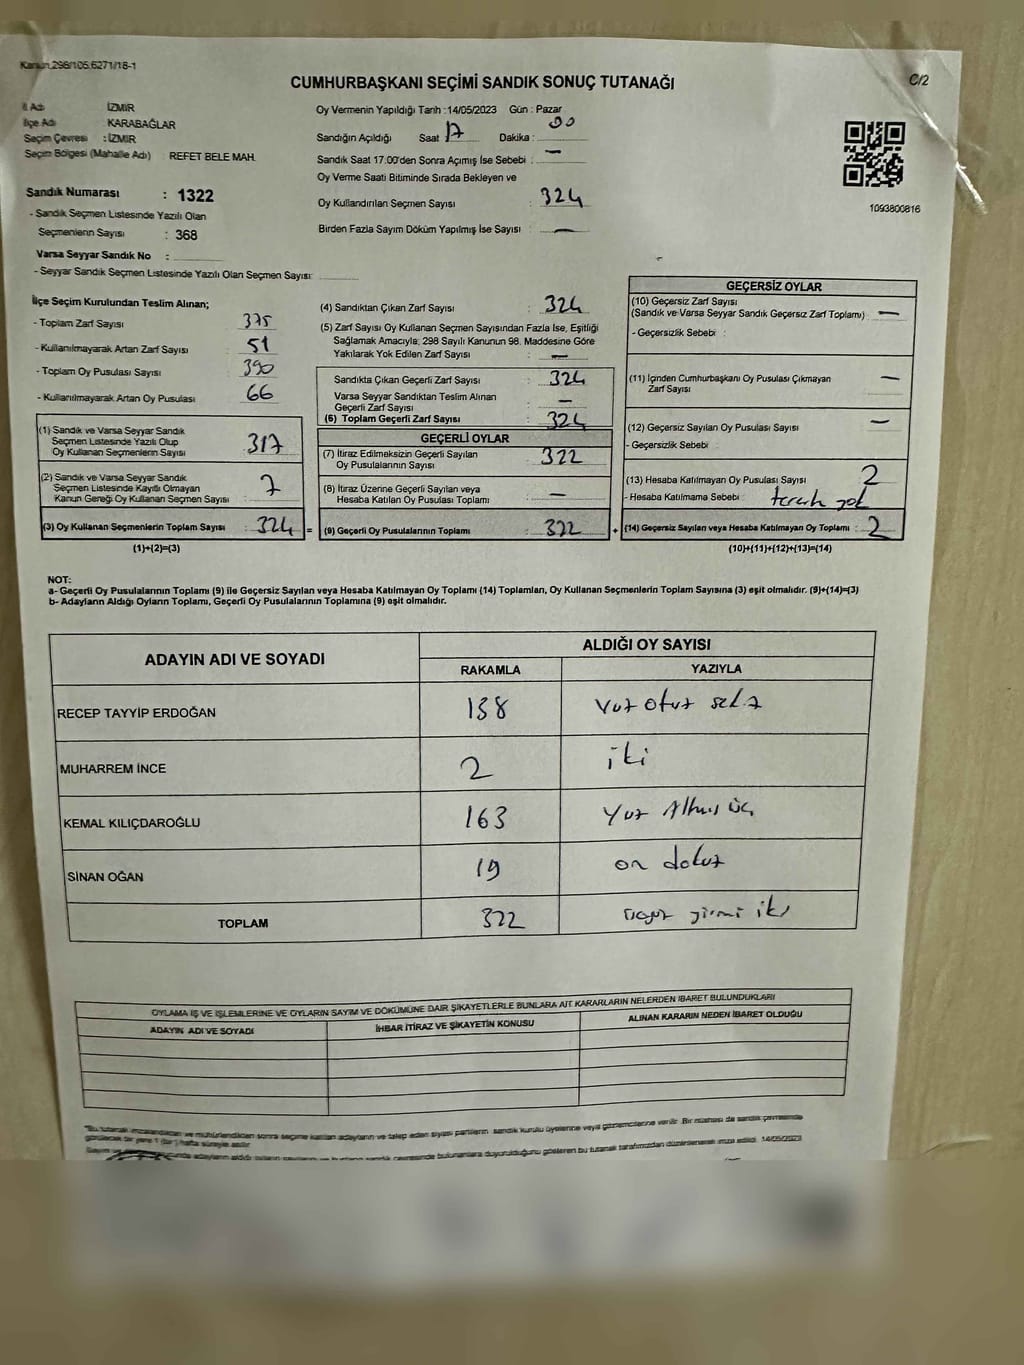 Kanun 298/105.6271/18-1
C/2
CUMHURBAŞKANI SEÇİMİ SANDIK SONUÇ TUTANAĞI
İl Adı İZMİR
İlçe Adı KARABAĞLAR
Seçim Çevresi : İZMİR
Seçim Bölgesi (Mahalle Adı) REFET BELE MAH.
Sandık Numarası : 1322
- Sandık Seçmen Listesinde Yazılı Olan
Seçmenlerin Sayısı : 368
Varsa Seyyar Sandık No :
- Seyyar Sandık Seçmen Listesinde Yazılı Olan Seçmen Sayısı:
Oy Vermenin Yapıldığı Tarih : 14/05/2023 Gün : Pazar
Sandığın Açıldığı Saat 17 Dakika : 00
Sandık Saat 17:00'den Sonra Açımış İse Sebebi : —
Oy Verme Saati Bitiminde Sırada Bekleyen ve
Oy Kullandırılan Seçmen Sayısı : 324
Birden Fazla Sayım Döküm Yapılmış İse Sayısı : —
1093800816
İlçe Seçim Kurulundan Teslim Alınan;
- Toplam Zarf Sayısı : 375
- Kullanılmayarak Artan Zarf Sayısı : 51
- Toplam Oy Pusulası Sayısı : 390
- Kullanılmayarak Artan Oy Pusulası : 66
(1) Sandık ve Varsa Seyyar Sandık
Seçmen Listesinde Yazılı Olup
Oy Kullanan Seçmenlerin Sayısı : 317
(2) Sandık ve Varsa Seyyar Sandık
Seçmen Listesinde Kayıtlı Olmayan
Kanun Gereği Oy Kullanan Seçmen Sayısı : 7
(3) Oy Kullanan Seçmenlerin Toplam Sayısı : 324 =
(1)+(2)=(3)
(4) Sandıktan Çıkan Zarf Sayısı : 324
(5) Zarf Sayısı Oy Kullanan Seçmen Sayısından Fazla İse, Eşitliği
Sağlamak Amacıyla, 298 Sayılı Kanunun 98. Maddesine Göre
Yakılarak Yok Edilen Zarf Sayısı : —
Sandıkta Çıkan Geçerli Zarf Sayısı : 324
Varsa Seyyar Sandıktan Teslim Alınan
Geçerli Zarf Sayısı : —
(6) Toplam Geçerli Zarf Sayısı : 324
GEÇERLİ OYLAR
(7) İtiraz Edilmeksizin Geçerli Sayılan
Oy Pusulalarının Sayısı : 322
(8) İtiraz Üzerine Geçerli Sayılan veya
Hesaba Katılan Oy Pusulası Toplamı : —
(9) Geçerli Oy Pusulalarının Toplamı : 322 +
GEÇERSİZ OYLAR
(10) Geçersiz Zarf Sayısı
(Sandık ve Varsa Seyyar Sandık Geçersiz Zarf Toplamı) : —
- Geçersizlik Sebebi :
(11) İçinden Cumhurbaşkanı Oy Pusulası Çıkmayan
Zarf Sayısı : —
(12) Geçersiz Sayılan Oy Pusulası Sayısı : —
- Geçersizlik Sebebi :
(13) Hesaba Katılmayan Oy Pusulası Sayısı : 2
- Hesaba Katılmama Sebebi : tercih yok
(14) Geçersiz Sayılan veya Hesaba Katılmayan Oy Toplamı : 2
(10)+(11)+(12)+(13)=(14)
NOT:
a- Geçerli Oy Pusulalarının Toplamı (9) ile Geçersiz Sayılan veya Hesaba Katılmayan Oy Toplamı (14) Toplamları, Oy Kullanan Seçmenlerin Toplam Sayısına (3) eşit olmalıdır. (9)+(14)=(3)
b- Adayların Aldığı Oyların Toplamı, Geçerli Oy Pusulalarının Toplamına (9) eşit olmalıdır.
ADAYIN ADI VE SOYADI ALDIĞI OY SAYISI
RAKAMLA YAZIYLA
RECEP TAYYİP ERDOĞAN 138 Yüz otuz sekiz
MUHARREM İNCE 2 iki
KEMAL KILIÇDAROĞLU 163 Yüz Altmış üç
SİNAN OĞAN 19 on dokuz
TOPLAM 322 üçyüz yirmi iki
OYLAMA İŞ VE İŞLEMLERİNE VE OYLARIN SAYIM VE DÖKÜMÜNE DAİR ŞİKAYETLERLE BUNLARA AİT KARARLARIN NELERDEN İBARET BULUNDUKLARI
ADAYIN ADI VE SOYADI İHBAR İTİRAZ VE ŞİKAYETİN KONUSU ALINAN KARARIN NEDEN İBARET OLDUĞU
"Bu tutanak imzalandıktan ve mühürlendikten sonra seçime katılan adayların ve talep eden siyasi partilerin sandık kurulu üyelerine veya gözlemcilerine verilir. Bir nüshası da sandık çevresinde
görülecek bir yere 1 (bir) hafta süreyle asılır.
adayların aldığı bulunanlara duyurulduğunu gösteren bu tutanak tarafımızdan düzenlenerek imza edildi. 14/05/2023